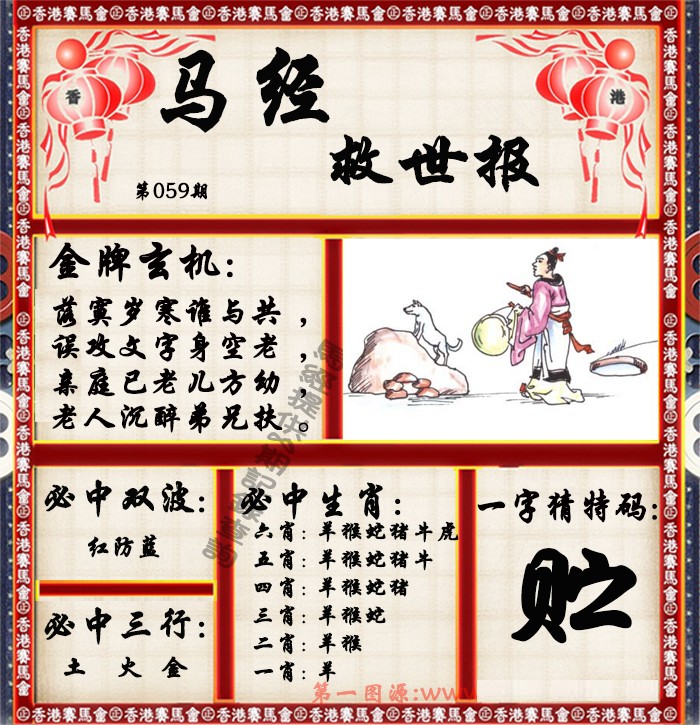 香
港
马经
救世报
第059期
金牌玄机：
落寞岁寒谁与共，
误攻文字身空老，
亲庭已老儿方幼，
老人沉醉弟兄扶。
必中双波：
红防蓝
必中三行：
土 火 金
必中生肖：
六肖：羊猴蛇猪牛虎
五肖：羊猴蛇猪牛
四肖：羊猴蛇猪
三肖：羊猴蛇
二肖：羊猴
一肖：羊
一字猜特码：
贮
第一图源:www.
香港賽馬會㊣香港賽馬會㊣香港賽馬會㊣香港賽馬會㊣香港賽馬會㊣香港賽馬會